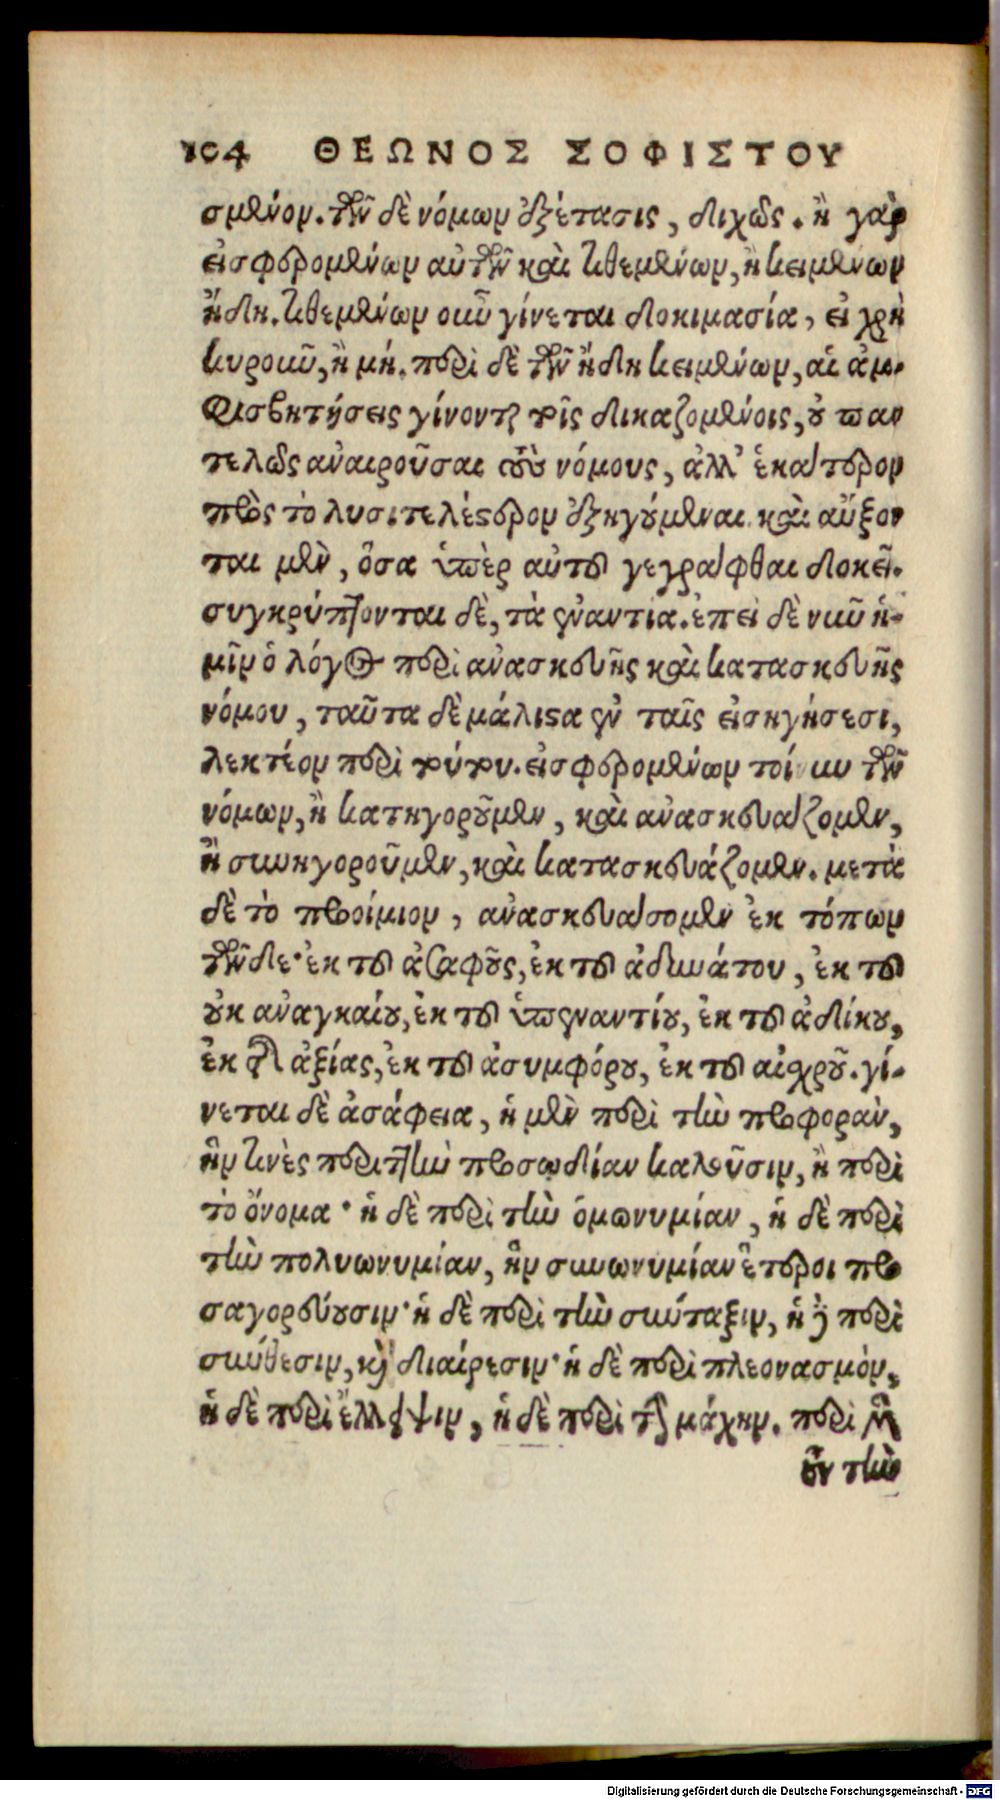 104 ΘΕΩΝΟΣ ΣΟΦΙΣΤΟΥ
σμένον. τῶν δὲ νόμων ἐξέτασις, διχῶς. ἢ γὰρ
εἰσφερομένων αὐτῶν καὶ τιθεμένων, ἢ κειμένων
ἤδη. τιθεμένων οὖν γίνεται δοκιμασία, εἰ χρὴ
κυροῦν, ἢ μή. περὶ δὲ τῶν ἤδη κειμένων, αἱ ἀμ-
φισβητήσεις γίνονται τοῖς δικαζομένοις, οὐ παν
τελῶς ἀναιροῦσαι τοὺς νόμους, ἀλλ' ἑκάτερον
πρὸς τὸ λυσιτελέστερον ἐξηγούμεναι. καὶ αὔξον
ται μὲν, ὅσα ὑπὲρ αὐτοῦ γεγράφθαι δοκεῖ.
συγκρύπτονται δὲ, τὰ ἐναντία. ἐπεὶ δὲ νῦν ἡ-
μῖν ὁ λόγος περὶ ἀνασκευῆς καὶ κατασκευῆς
νόμου, ταῦτα δὲ μάλιστα ἐν ταῖς εἰσηγήσεσι,
λεκτέον περὶ τούτου. εἰσφερομένων τοίνυν τῶν
νόμων, ἢ κατηγοροῦμεν, καὶ ἀνασκευάζομεν,
ἢ συνηγοροῦμεν, καὶ κατασκευάζομεν. μετὰ
δὲ τὸ προοίμιον, ἀνασκευάσομεν ἐκ τόπων
τῶνδε· ἐκ τοῦ ἀσαφοῦς, ἐκ τοῦ ἀδυνάτου, ἐκ τοῦ
οὐκ ἀναγκαίου, ἐκ τοῦ ὑπεναντίου, ἐκ τοῦ ἀδίκου,
ἐκ τοῦ ἀξίας, ἐκ τοῦ ἀσυμφόρου, ἐκ τοῦ αἰσχροῦ. γί-
νεται δὲ ἀσάφεια, ἡ μὲν περὶ τὴν προφορὰν,
ἣν τινὲς περὶ τὴν προσῳδίαν καλοῦσιν, ἢ περὶ
τὸ ὄνομα· ἡ δὲ περὶ τὴν ὁμωνυμίαν, ἡ δὲ περὶ
τὴν πολυωνυμίαν, ἣν συνωνυμίαν ἕτεροι προ
σαγορεύουσιν· ἡ δὲ περὶ τὴν σύνταξιν, ἡ δὲ περὶ
σύνθεσιν, καὶ διαίρεσιν· ἡ δὲ περὶ πλεονασμὸν,
ἡ δὲ περὶ ἔλλειψιν, ἡ δὲ περὶ τὴν μάχην. περὶ μὲν
οὖν τὴν
Digitalisierung gefördert durch die Deutsche Forschungsgemeinschaft - DFG